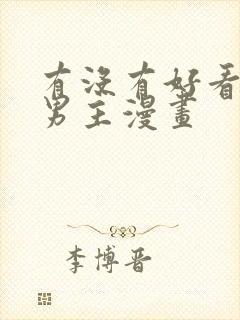 有沒有好看
男主漫畫
李博晋